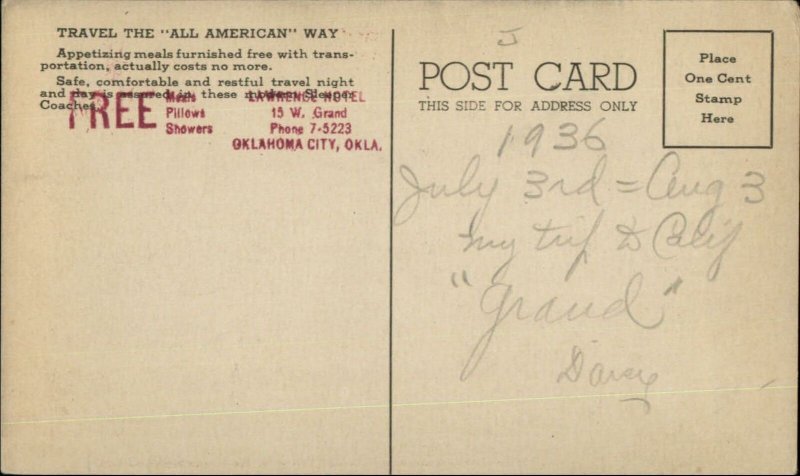 TRAVEL THE "ALL AMERICAN" WAY
Appetizing meals furnished free with trans-
portation, actually costs no more.
Safe, comfortable and restful travel night
and day is assured in these modern Sleeper
Coaches.
FREE
Meals
Pillows
Showers
LAWRENCE HOTEL
15 W. Grand
Phone 7-5223
OKLAHOMA CITY, OKLA.
J
POST CARD
THIS SIDE FOR ADDRESS ONLY
Place
One Cent
Stamp
Here
1936
July 3rd = Aug 3
my trip to Calif
"Grand"